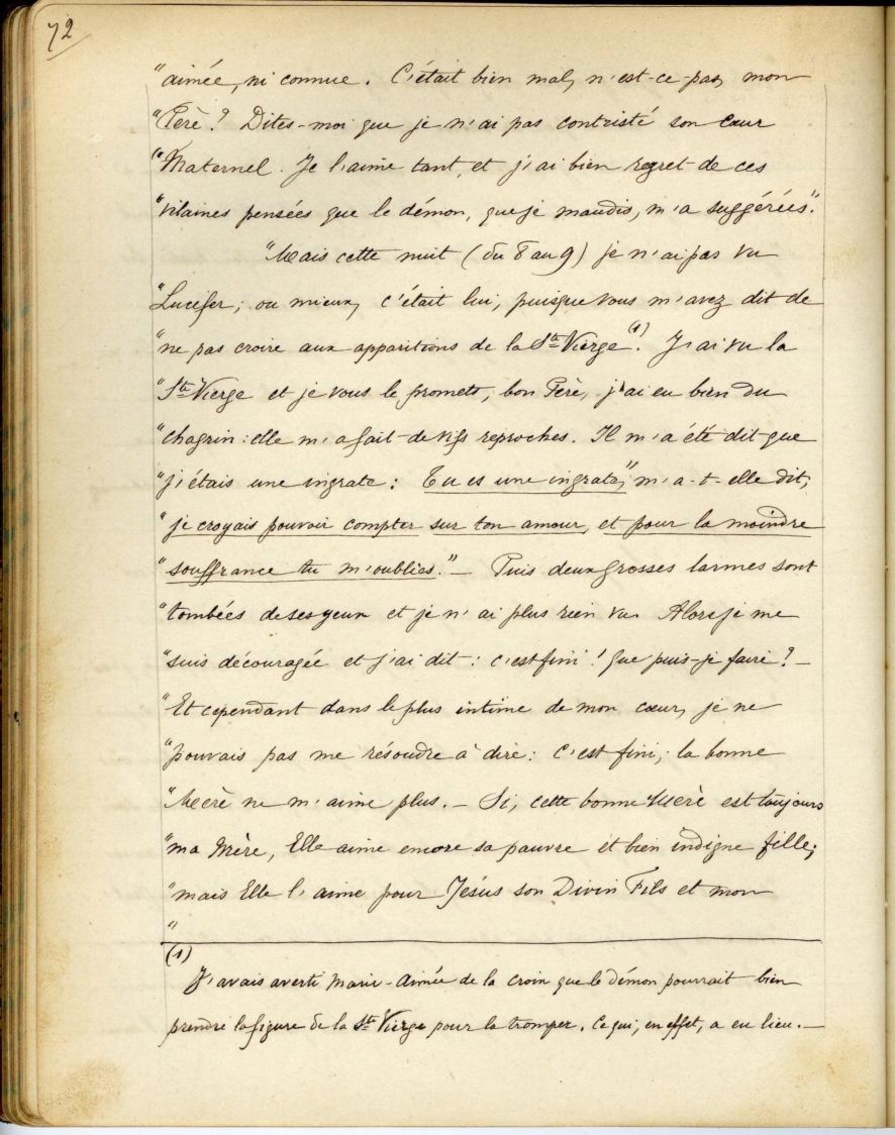 72
"aimée, ni connue. C'était bien mal, n'est-ce-pas, mon
"Père? Dites-moi que je n'ai pas contristé son Cœur
"Maternel. Je l'aime tant, et j'ai bien regret de ces
"vilaines pensées que le démon, que je maudis, m'a suggérées".
"Mais cette nuit (du 8 au 9) je n'ai pas vu
"Lucifer; ou mieux, c'était lui, puisque vous m'avez dit de
"ne pas croire aux apparitions de la Ste Vierge (1). J'ai vu la
"Ste Vierge et je vous le promets, bon Père, j'ai eu bien du
"chagrin: elle m'a fait de vifs reproches. Il m'a été dit que
"j'étais une ingrate: Tu es une ingrate," m'a-t-elle dit,
"je croyais pouvoir compter sur ton amour, et pour la moindre
"souffrance tu m'oublies." — Puis deux grosses larmes sont
"tombées de ses yeux et je n'ai plus rien vu. Alors je me
"suis découragée et j'ai dit: c'est fini! Que puis-je faire? —
"Et cependant dans le plus intime de mon cœur, je ne
"pouvais pas me résoudre à dire: c'est fini; la bonne
"Mère ne m'aime plus. — Si, cette bonne Mère est toujours
"ma Mère, Elle aime encore sa pauvre et bien indigne fille;
"mais Elle l'aime pour Jésus son Divin Fils et mon
"
(1)
J'avais averti Marie-Aimée de la croix que le démon pourrait bien
prendre la figure de la Ste Vierge pour la tromper. Ce qui, en effet, a eu lieu. —